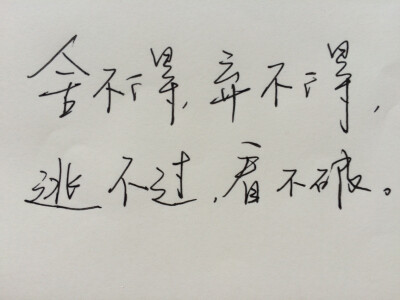 舍不得,弃不得,
逃不过,看不破。